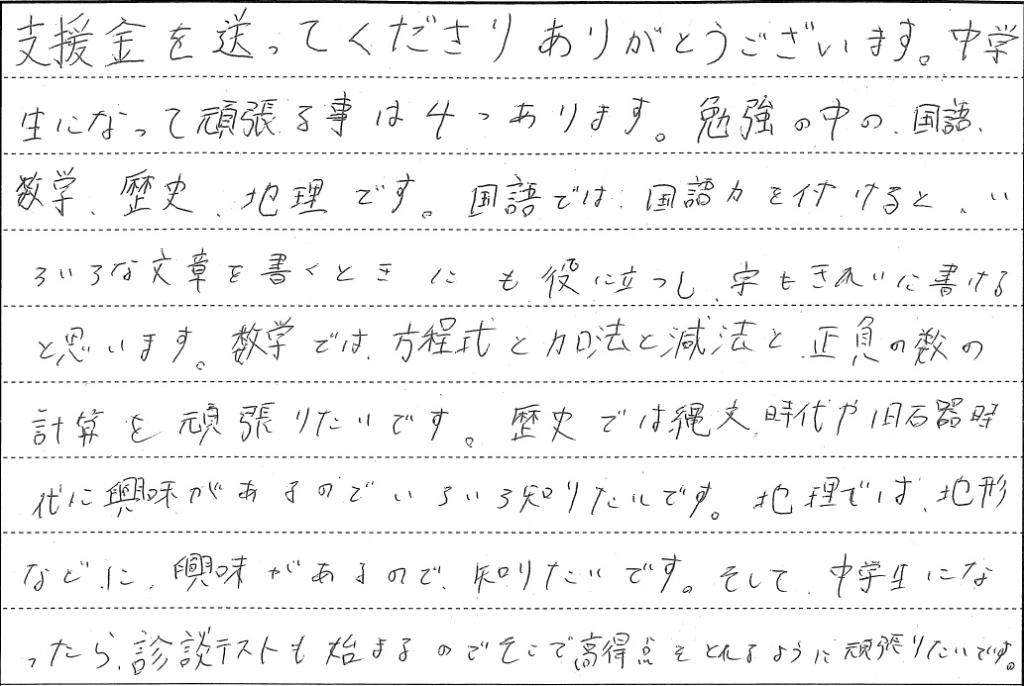 支援金を送ってくださりありがとうございます。中学
生になって頑張る事は4つあります。勉強の中の、国語、
数学、歴史、地理です。国語では、国語力を付けると、い
ろいろな文章を書くときにも役に立つし、字もきれいに書ける
と思います。数学では、方程式と加法と減法と、正負の数の
計算を頑張りたいです。歴史では縄文時代や旧石器時
代に興味があるのでいろいろ知りたいです。地理では、地形
などに、興味があるので、知りたいです。そして、中学生にな
ったら、診談テストも始まるのでそこで高得点をとれるように頑張りたいです。